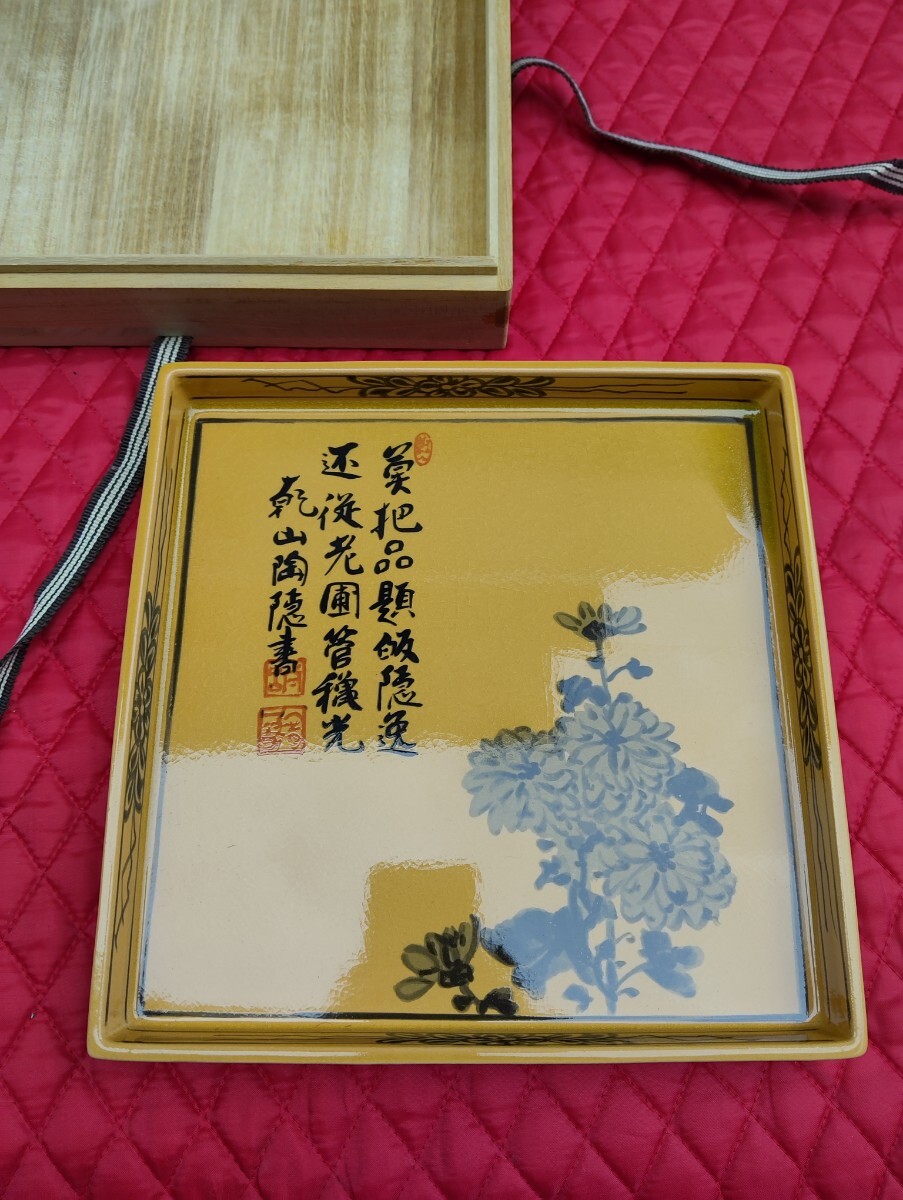 莫把品題皈隠逸
还従老圃管穐光
乾山陶隠書